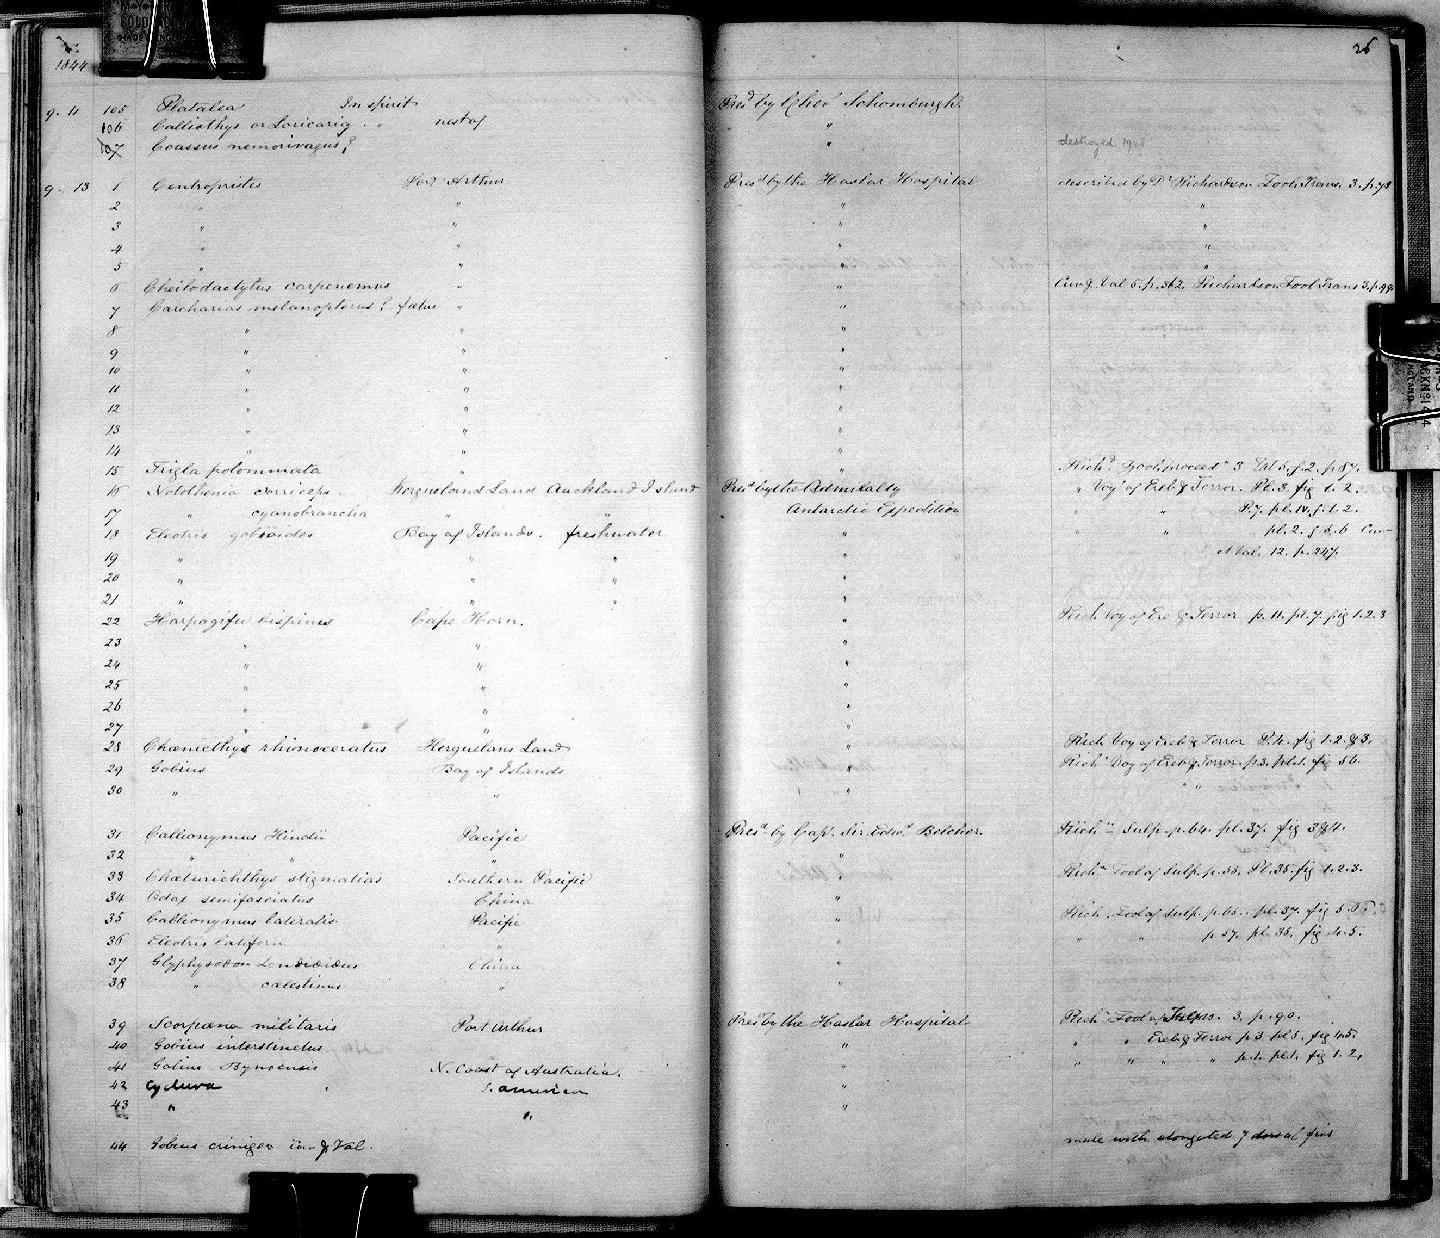 1844 26
9. 11 105 Platalea In spirit Presd by Chevr Schomburgk
106 Callicthys or Loricaria " nest of "
107 Coassus nemorivagus? " destroyed 1948
9. 13 1 Centropristes Port Arthur Presd by the Haslar Hospital described by Dr Richardson Zool. Trans. 3. p. 78
2 " " " "
3 " " " "
4 " " " "
5 " " " "
6 Cheilodactylus carponemus " " Cuv & Val 5. p. 362. Richardson Zool Trans 3. p. 99
7 Carcharias melanopterus? fœtus " "
8 " " "
9 " " "
10 " " "
11 " " "
12 " " "
13 " " "
14 " " "
15 Trigla polommata " " Richd Zool proceedn 3
16 Notothenia coriiceps Kergueland Land Auckland Island Presd by the Admiralty " Voy of Ereb & Terror. Pl. 3. fig 1. 2.
17 " cyanobrancha " " Antarctic Expedition " " P. 7. pl. iv. f. 1. 2.
18 Eleotris gobioides Bay of Islands. freshwater " " " pl. 2. f. 5. 6 Cuv
et Val. 12. p. 247.
19 " " " "
20 " " " "
21 " " " "
22 Harpagifer bispinis Cape Horn. " Rich. Voy of Ere & Terror p. 11. pl. 7. fig 1. 2. 3
23 " " "
24 " " "
25 " " "
26 " " "
27 " " "
28 Chænicthys rhinoceratus Kerguelans Land " Rich Voy of Ereb & Terror fig 1. 2. & 3.
29 Gobius Bay of Islands " Richn Voy of Ereb & Terror. p. 3. pl. 1. fig 5 6.
30 " " " " "
31 Callionymus Hindii Pacific Presd by Capt Sir Edwd Belcher. Richn Sulp. p. 64. pl. 37. fig 3 & 4.
32 " " " "
33 Chæturichthys stigmatias Southern Pacific " Richn Zool of Sulp. p. 55. Pl. 35. fig 1. 2. 3.
34 Odax semifasciatus China "
35 Callionymus lateralis Pacific " Rich. Zool of Sulp. p. 65. pl. 37. fig 5.
36 Eleotris latifron " " " " p. 57. pl. 35. fig 4. 5.
37 Glyphysodon China "
38 " cælestinus " "
39 Scorpæna militaris Port Arthur Presd by the Haslar Hospital Richn Zool of 3. p. 90.
40 Gobius interstinctus " " " Ereb & Terror p. 3 pl. 5. fig 4. 5.
41 Gobius Bynoensis N. Coast of Australia. " " " " " p. 1. pl. 1. fig 1. 2.
42 Cyclura " S. america "
43 " " "
44 Gobius criniger Cuv & Val. male with elongated 1 dorsal fins